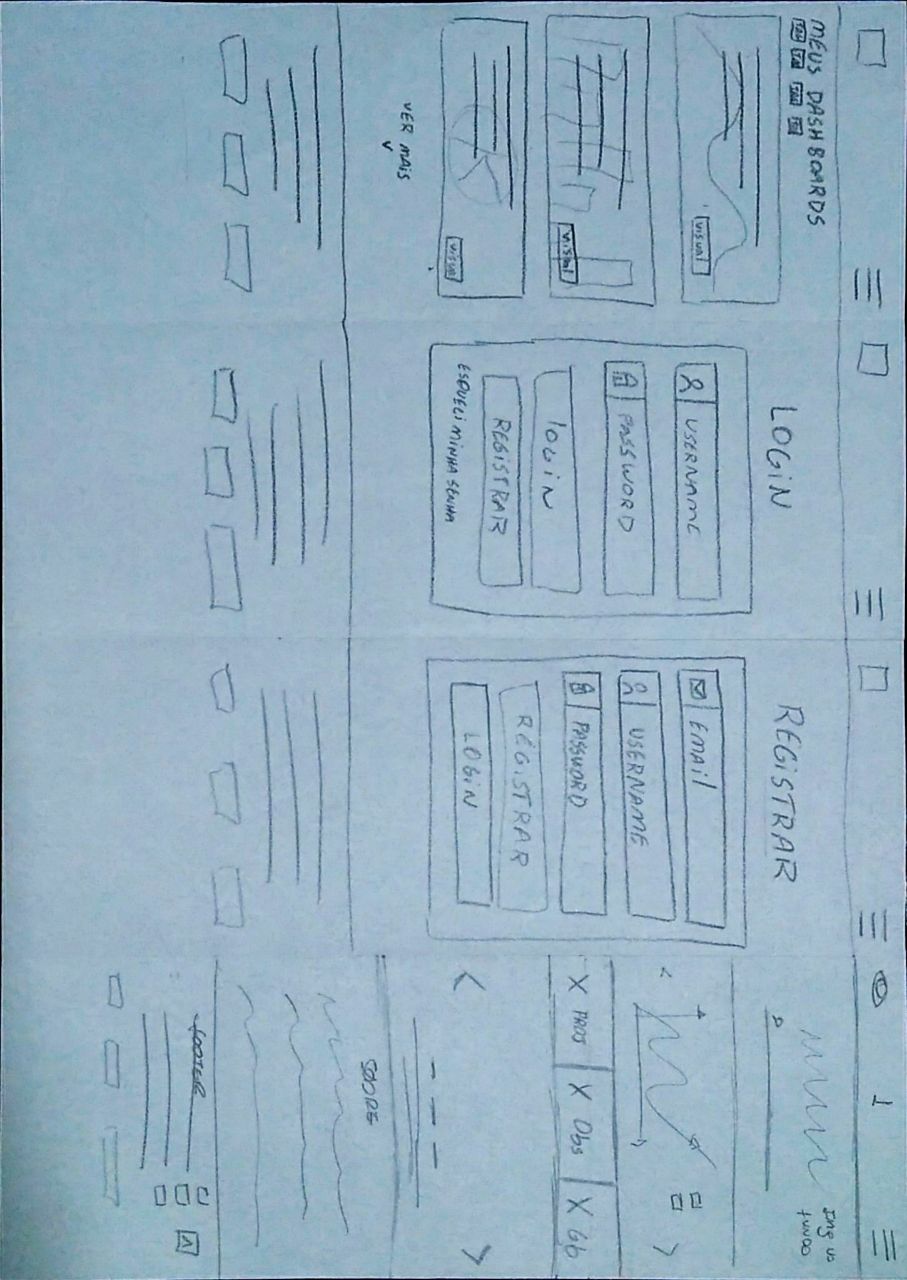 MEUS DASHBOARDS
TAG TAG TAG
visual
visual
visual
VER MAIS
LOGIN
USERNAME
PASSWORD
LOGIN
REGISTRAR
ESQUECI MINHA SENHA
REGISTRAR
EMAIL
USERNAME
PASSWORD
REGISTRAR
LOGIN
1
Img
fundo
X PROJ X Obs X Gb
SOBRE
FOOTER